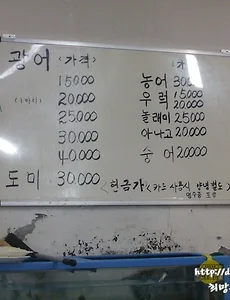 광어 <가격>
15000
(1마리) 20000
25000
30.000
40.000
도미 30.000
농어 30
우럭 15.000
20.000
놀래미 25000
아나고 20000
숭어 20000
<현금가> <카드 사용시 별도>
http://d
희망